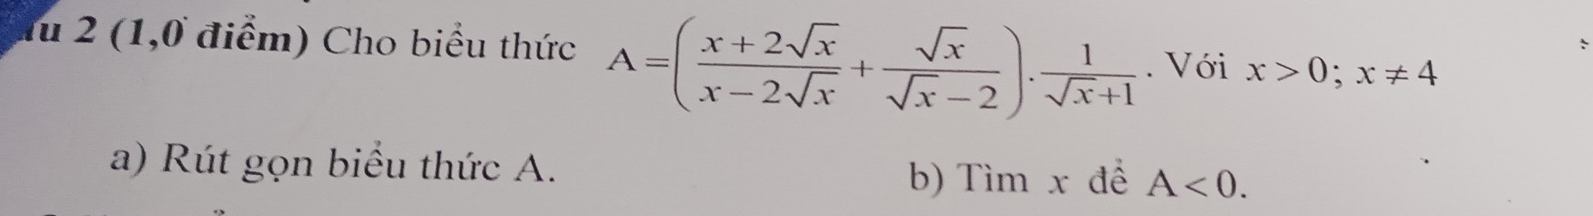 2 (1,0 điểm) Cho biểu thức A = ( (x + 2√x)/(x − 2√x) + √x/(√x − 2) ) . 1/(√x + 1) . Với x > 0; x ≠ 4
a) Rút gọn biểu thức A. b) Tìm x để A < 0.